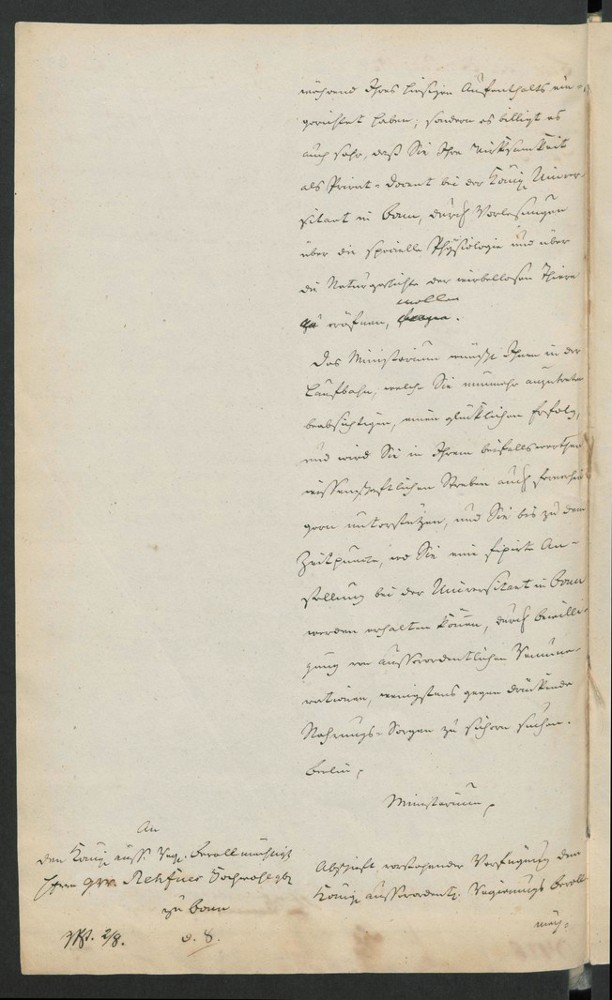 während Ihres hiesigen Aufenthalts ein-
gerichtet haben; sondern es billigt es
auch sehr, daß Sie Ihre Wirksamkeit
als Privat-Docent bei der Königl. Univer-
sitaet in Bonn, durch Vorlesungen
über die specielle Physiologie und über
die Naturgeschichte der wirbellosen Thiere
wollen
zu eröfnen,
Das Ministerium wünscht Ihnen in der
Laufbahn, welche Sie nunmehr anzutreten
beabsichtigen, einen glücklichen Erfolg,
und wird Sie in Ihrem beifallswerthen
wissenschaftlichen Streben auch fernerhin
gern unterstützen, und Sie bis zu dem
Zeitpunct, wo Sie eine fixirte An-
stellung bei der Universitaet in Bonn
werden erhalten können, durch Bewilli-
gung von ausserordentlichen Remune-
rationen, wenigstens gegen drückende
Nahrungs-Sorgen zu sichern suchen.
Berlin,
Ministerium
An
den Königl. auss. Reg. Bevollmächtigt
Herrn Rehfues Hochwohlgb.
zu Bonn
Abschrift vorstehender Verfügung dem
Königl. ausserordentl. Regierungs Bevoll
mäch.